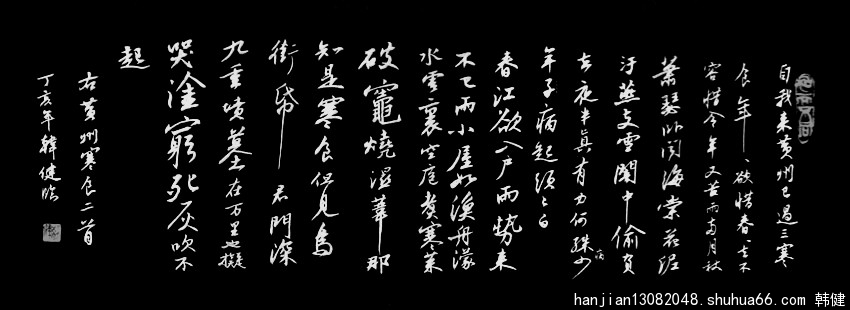 自我来黄州已過三寒
食年〻欲惜春〻去不
容惜今年又苦雨兩月秋
蕭瑟卧聞海棠花泥
汙燕支雪闇中偷負
去夜半真有力何殊少
病
年子病起頭已白
春江欲入戶雨勢來
不已雨小屋如漁舟濛
水雲裏空庖煮寒菜
破竈燒濕葦那
知是寒食但見烏
銜帋君門深
九重墳墓在万里也擬
哭塗窮死灰吹不
起
右黄州寒食二首
丁亥年韓健臨
hanjian13082048.shuhua66.com 韩健